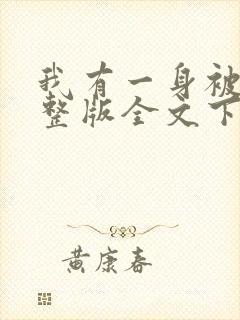 我有一身被
整版全文下
黄康春